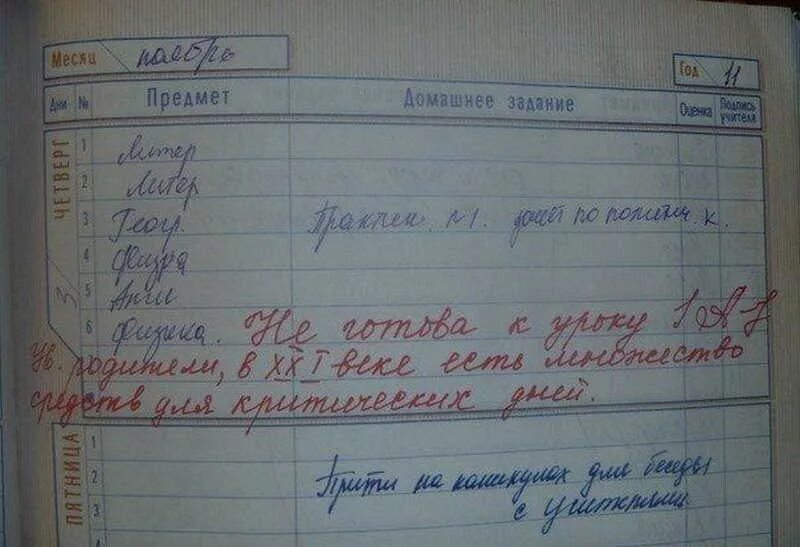 Месяц ноябрь
Год 11
Дни № Предмет Домашнее задание Оценка Подпись учителя
ЧЕТВЕРГ 3
1 Литер
2 Литер
3 Геогр. Практич. №1. по политич. к.
4 Физра
5 Англ
6 Физика. Не готова к уроку
Ув. родители, в XXI веке есть множество
средств для критических дней.
ПЯТНИЦА
1
2 Прити на каникулах для беседы
3 с учителями
4